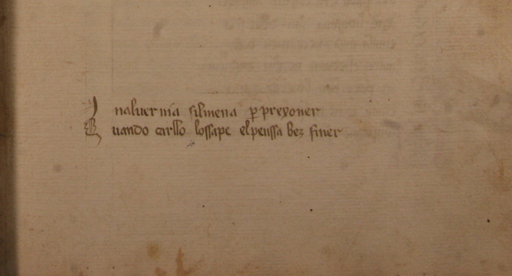 I naluernia silmena p prexoner
Quando carllo lossape elpenssa bez finer